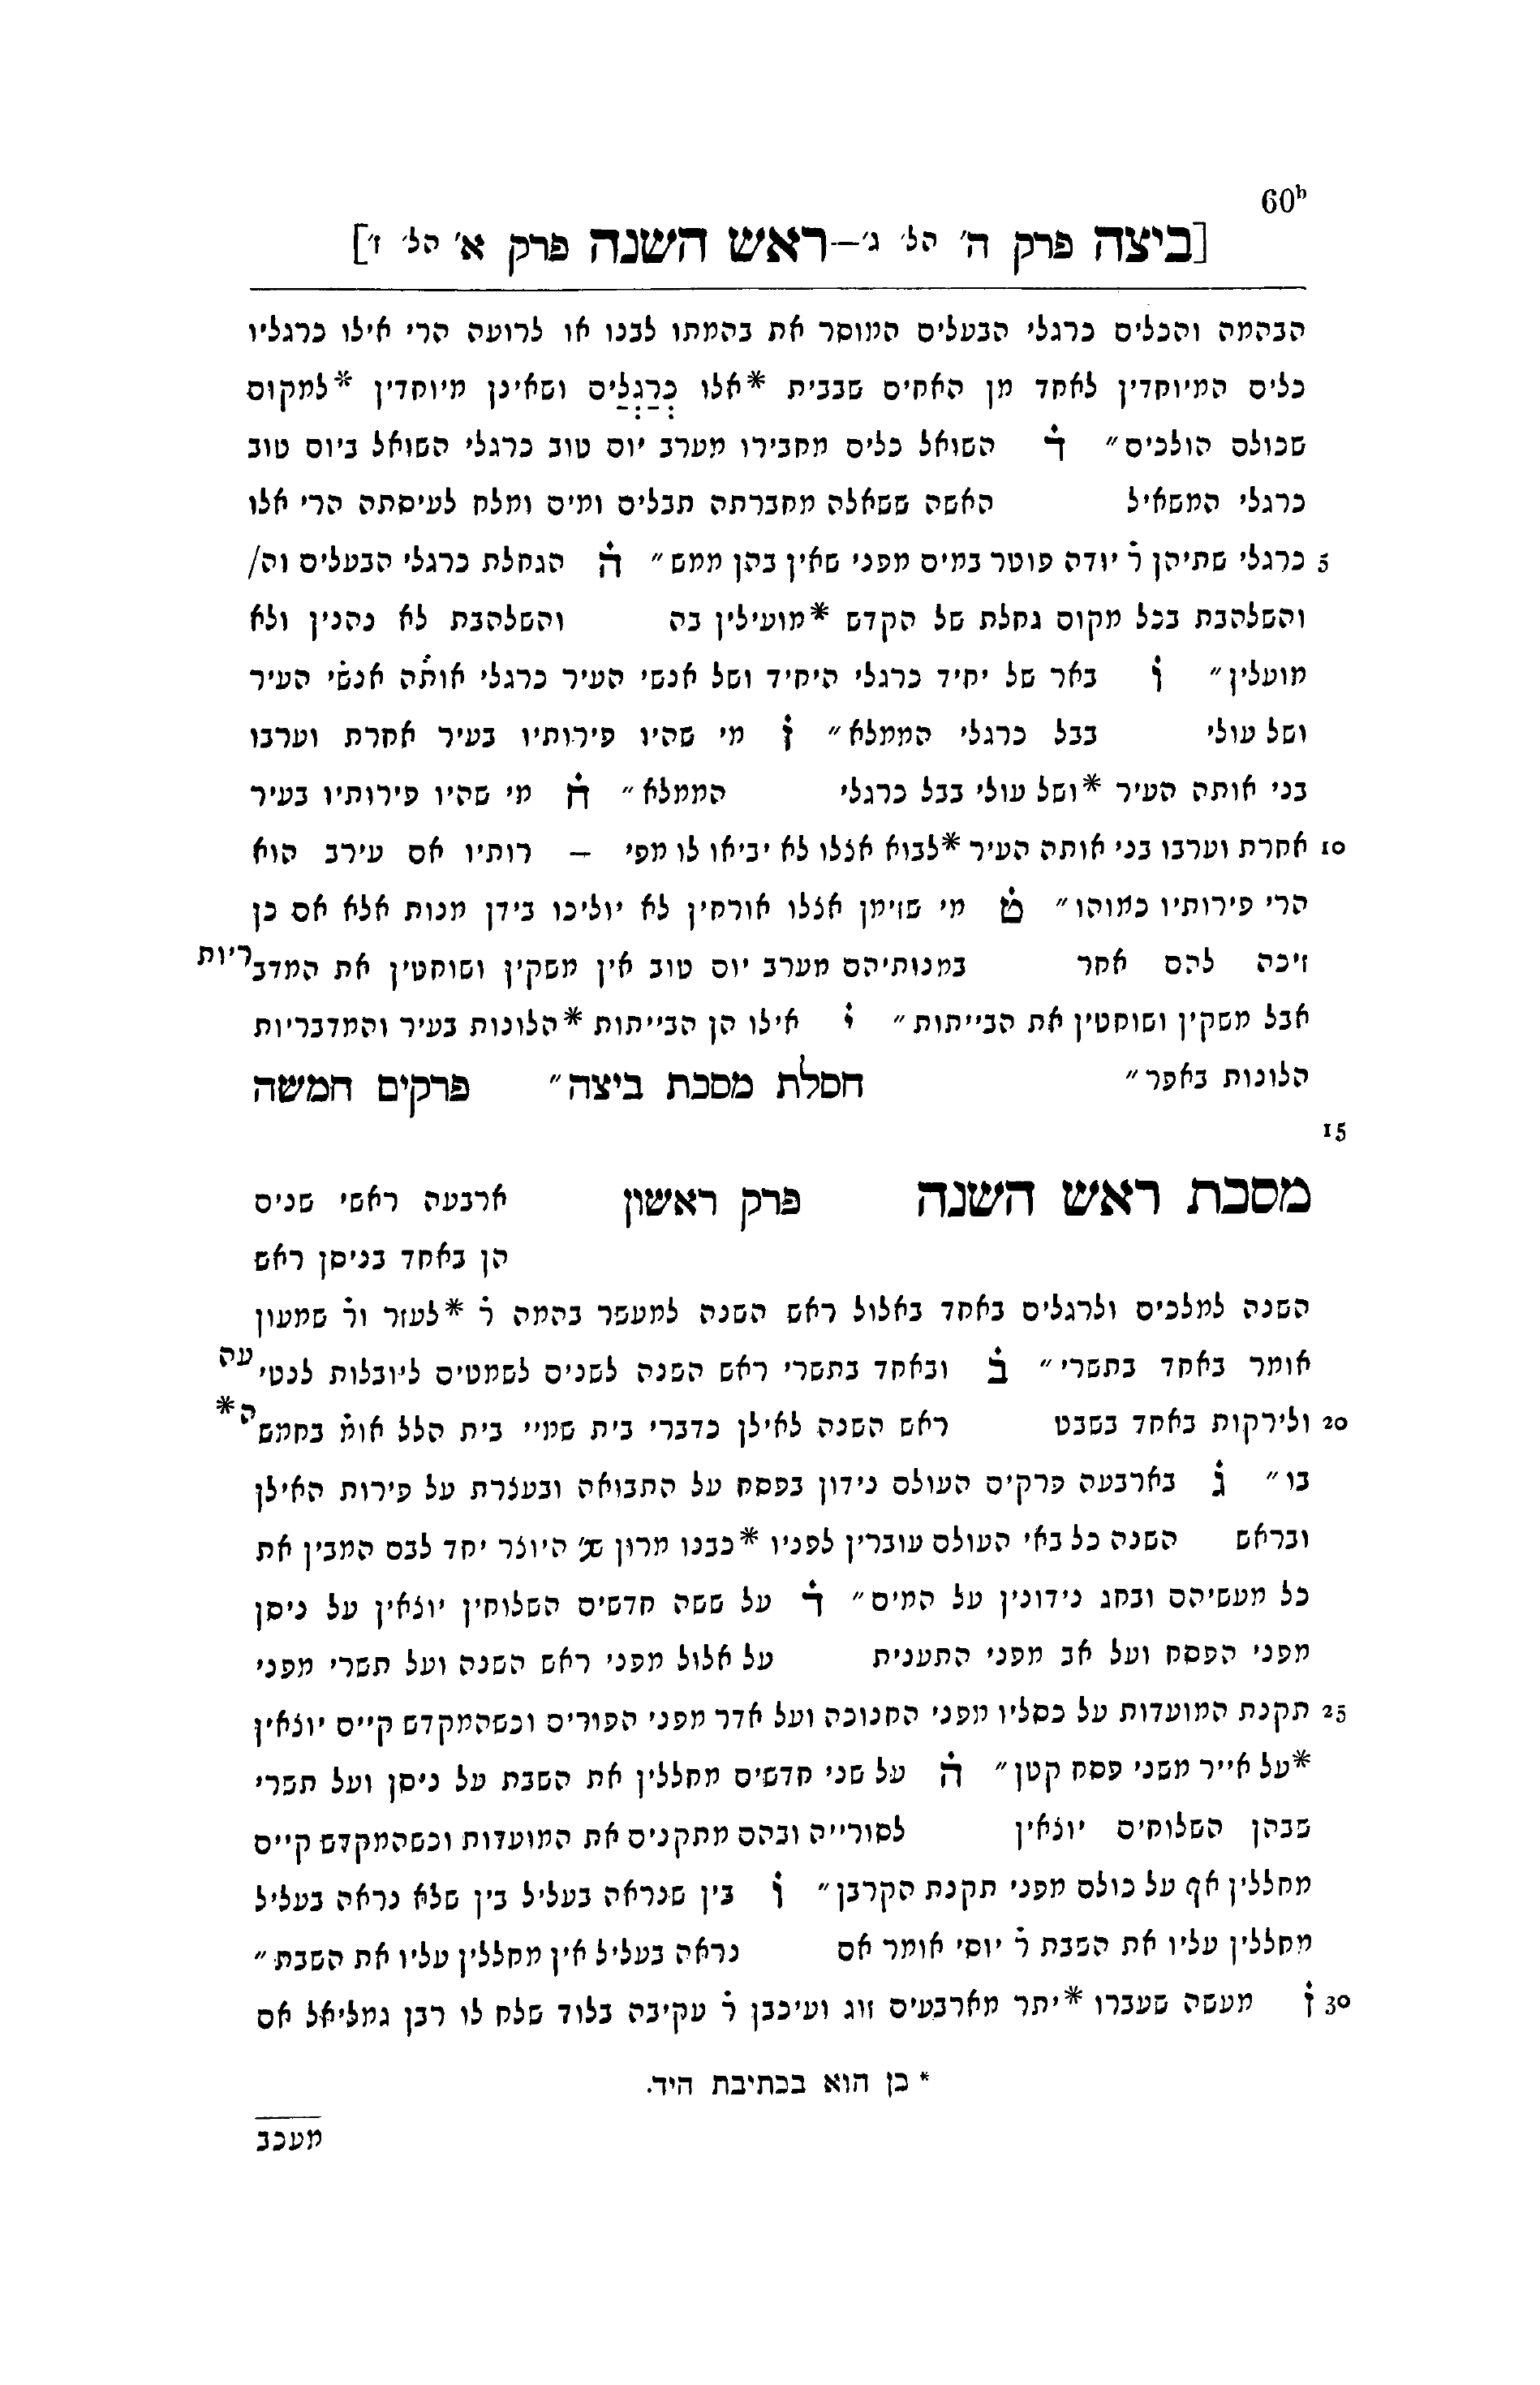 60b
[ביצה פרק ה' הל' ג'—ראש השנה פרק א' הל' ז']
הבהמה והכלים כרגלי הבעלים המוסר את בהמתו לבנו או לרועה הרי אילו כרגליו
כלים המיוחדין לאחד מן האחים שבבית *אלו כְרַגְלַים ושאינן מיוחדין *למקום
שכולם הולכים״ ד השואל כלים מחבירו מערב יום טוב כרגלי השואל ביום טוב
כרגלי המשאיל האשה ששאלה מחברתה תבלים ומים ומלח לעיסתה הרי אלו
5 כרגלי שתיהן ר יודה פוטר במים מפני שאין בהן ממש״ ה הגחלת כרגלי הבעלים וה/
והשלהבת בכל מקום גחלת של הקדש *מועילין בה והשלהבת לא נהנין ולא
מועלין״ ו באר של יחיד כרגלי היחיד ושל אנשי העיר כרגלי אותה אנשי העיר
ושל עולי בבל כרגלי הממלא״ ז מי שהיו פירותיו בעיר אחרת וערבו
בני אותה העיר *ושל עולי בבל כרגלי הממלא״ ח מי שהיו פירותיו בעיר
10 אחרת וערבו בני אותה העיר *לבוא אצלו לא יביאו לו מפי – רותיו אם עירב הוא
הרי פירותיו כמוהו״ ט מי שזימן אצלו אורחין לא יוליכו בידן מנות אלא אם כן
זיכה להם אחר במנותיהם מערב יום טוב אין משקין ושוחטין את המדבריות
אבל משקין ושוחטין את הבייתות״ י אילו הן הבייתות *הלונות בעיר והמדבריות
הלונות באפר״ חסלת מסכת ביצה״ פרקים חמשה
15
מסכת ראש השנה פרק ראשון ארבעה ראשי שנים
הן באחד בניסן ראש
השנה למלכים ולרגלים באחד באלול ראש השנה למעשר בהמה ר *לעזר ור שמעון
אומר באחד בתשרי״ ב ובאחד בתשרי ראש השנה לשנים לשמטים ליובלות לנטיעה
20 ולירקות באחד בשבט ראש השנה לאילן כדברי בית שמיי בית הלל אומ בחמשה*
בו״ ג בארבעה פרקים העולם נידון בפסח על התבואה ובעצרת על פירות האילן
ובראש השנה כל באי העולם עוברין לפניו *כבנו מרון שנ' היוצר יחד לבם המבין את
כל מעשיהם ובחג נידונין על המים״ ד על ששה חדשים השלוחין יוצאין על ניסן
מפני הפסח ועל אב מפני התענית על אלול מפני ראש השנה ועל תשרי מפני
25 תקנת המועדות על כסליו מפני החנוכה ועל אדר מפני הפורים וכשהמקדש קיים יוצאין
*על אייר משני פסח קטן״ ה על שני חדשים מחללין את השבת על ניסן ועל תשרי
שבהן השלוחים יוצאין לסורייה ובהם מתקנים את המועדות וכשהמקדש קיים
מחללין אף על כולם מפני תקנת הקרבן״ ו בין שנראה בעליל בין שלא נראה בעליל
מחללין עליו את השבת ר יוסי אומר אם נראה בעליל אין מחללין עליו את השבת״
30 ז מעשה שעברו *יתר מארבעים זוג ועיכבן ר עקיבה בלוד שלח לו רבן גמליאל אם
* כן הוא בכתיבת היד.
מעכב